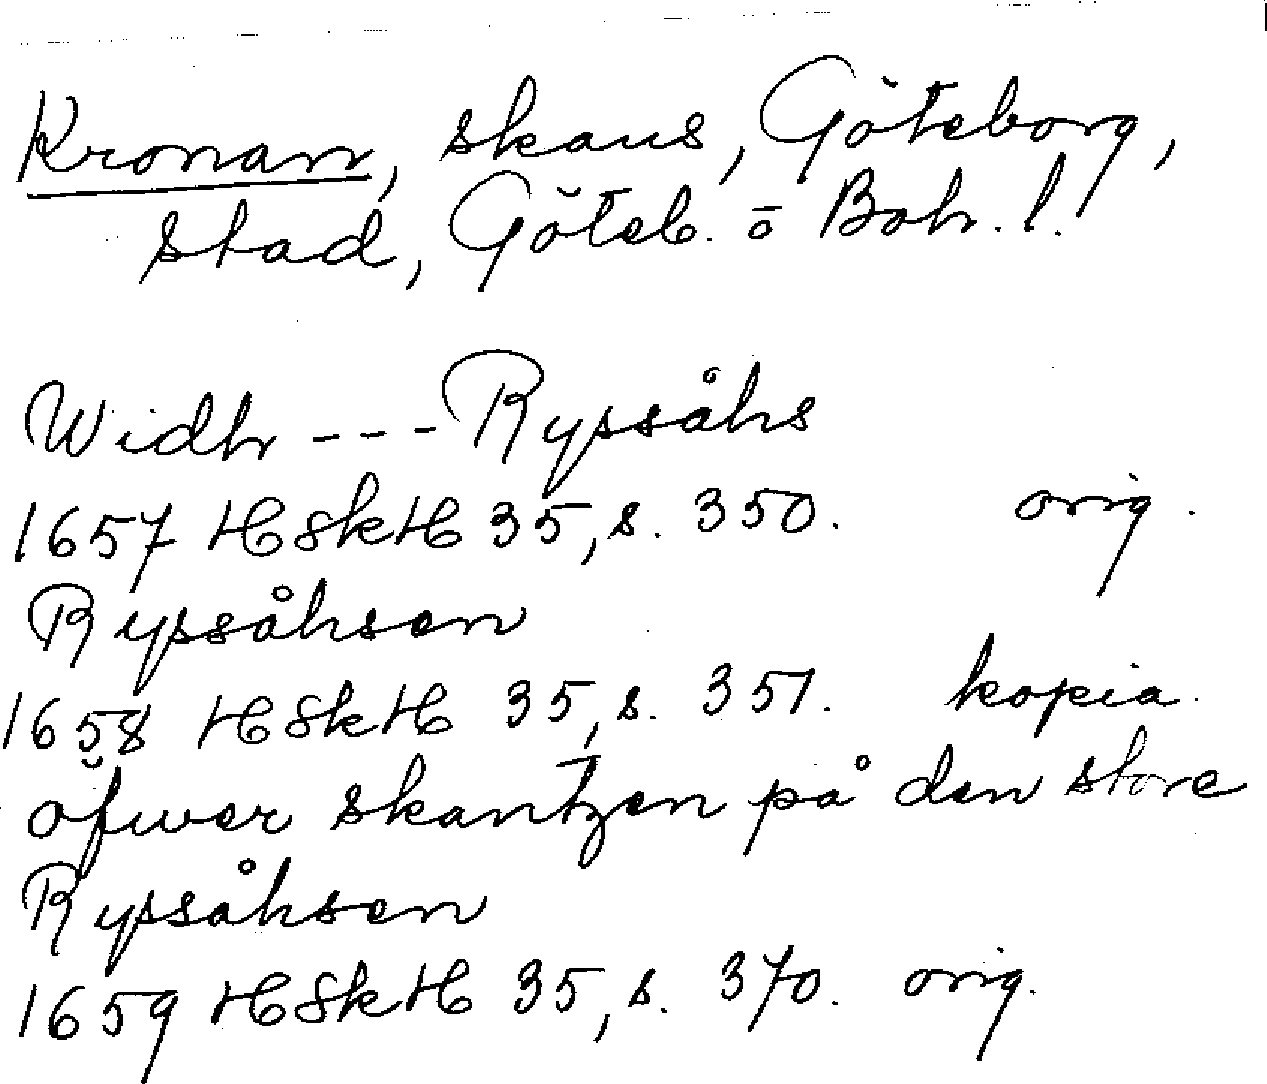 Kronan, skans, Göteborg,
stad, Göteb. o Boh. l.
Widh --- Ryssåhs
1657 HSkH 35, s. 350. orig.
Ryssåhsen
1658 HSkH 35, s. 351. kopia.
öfwer skantzen på den store
Ryssåhsen
1659 HSkH 35, s. 370. orig.